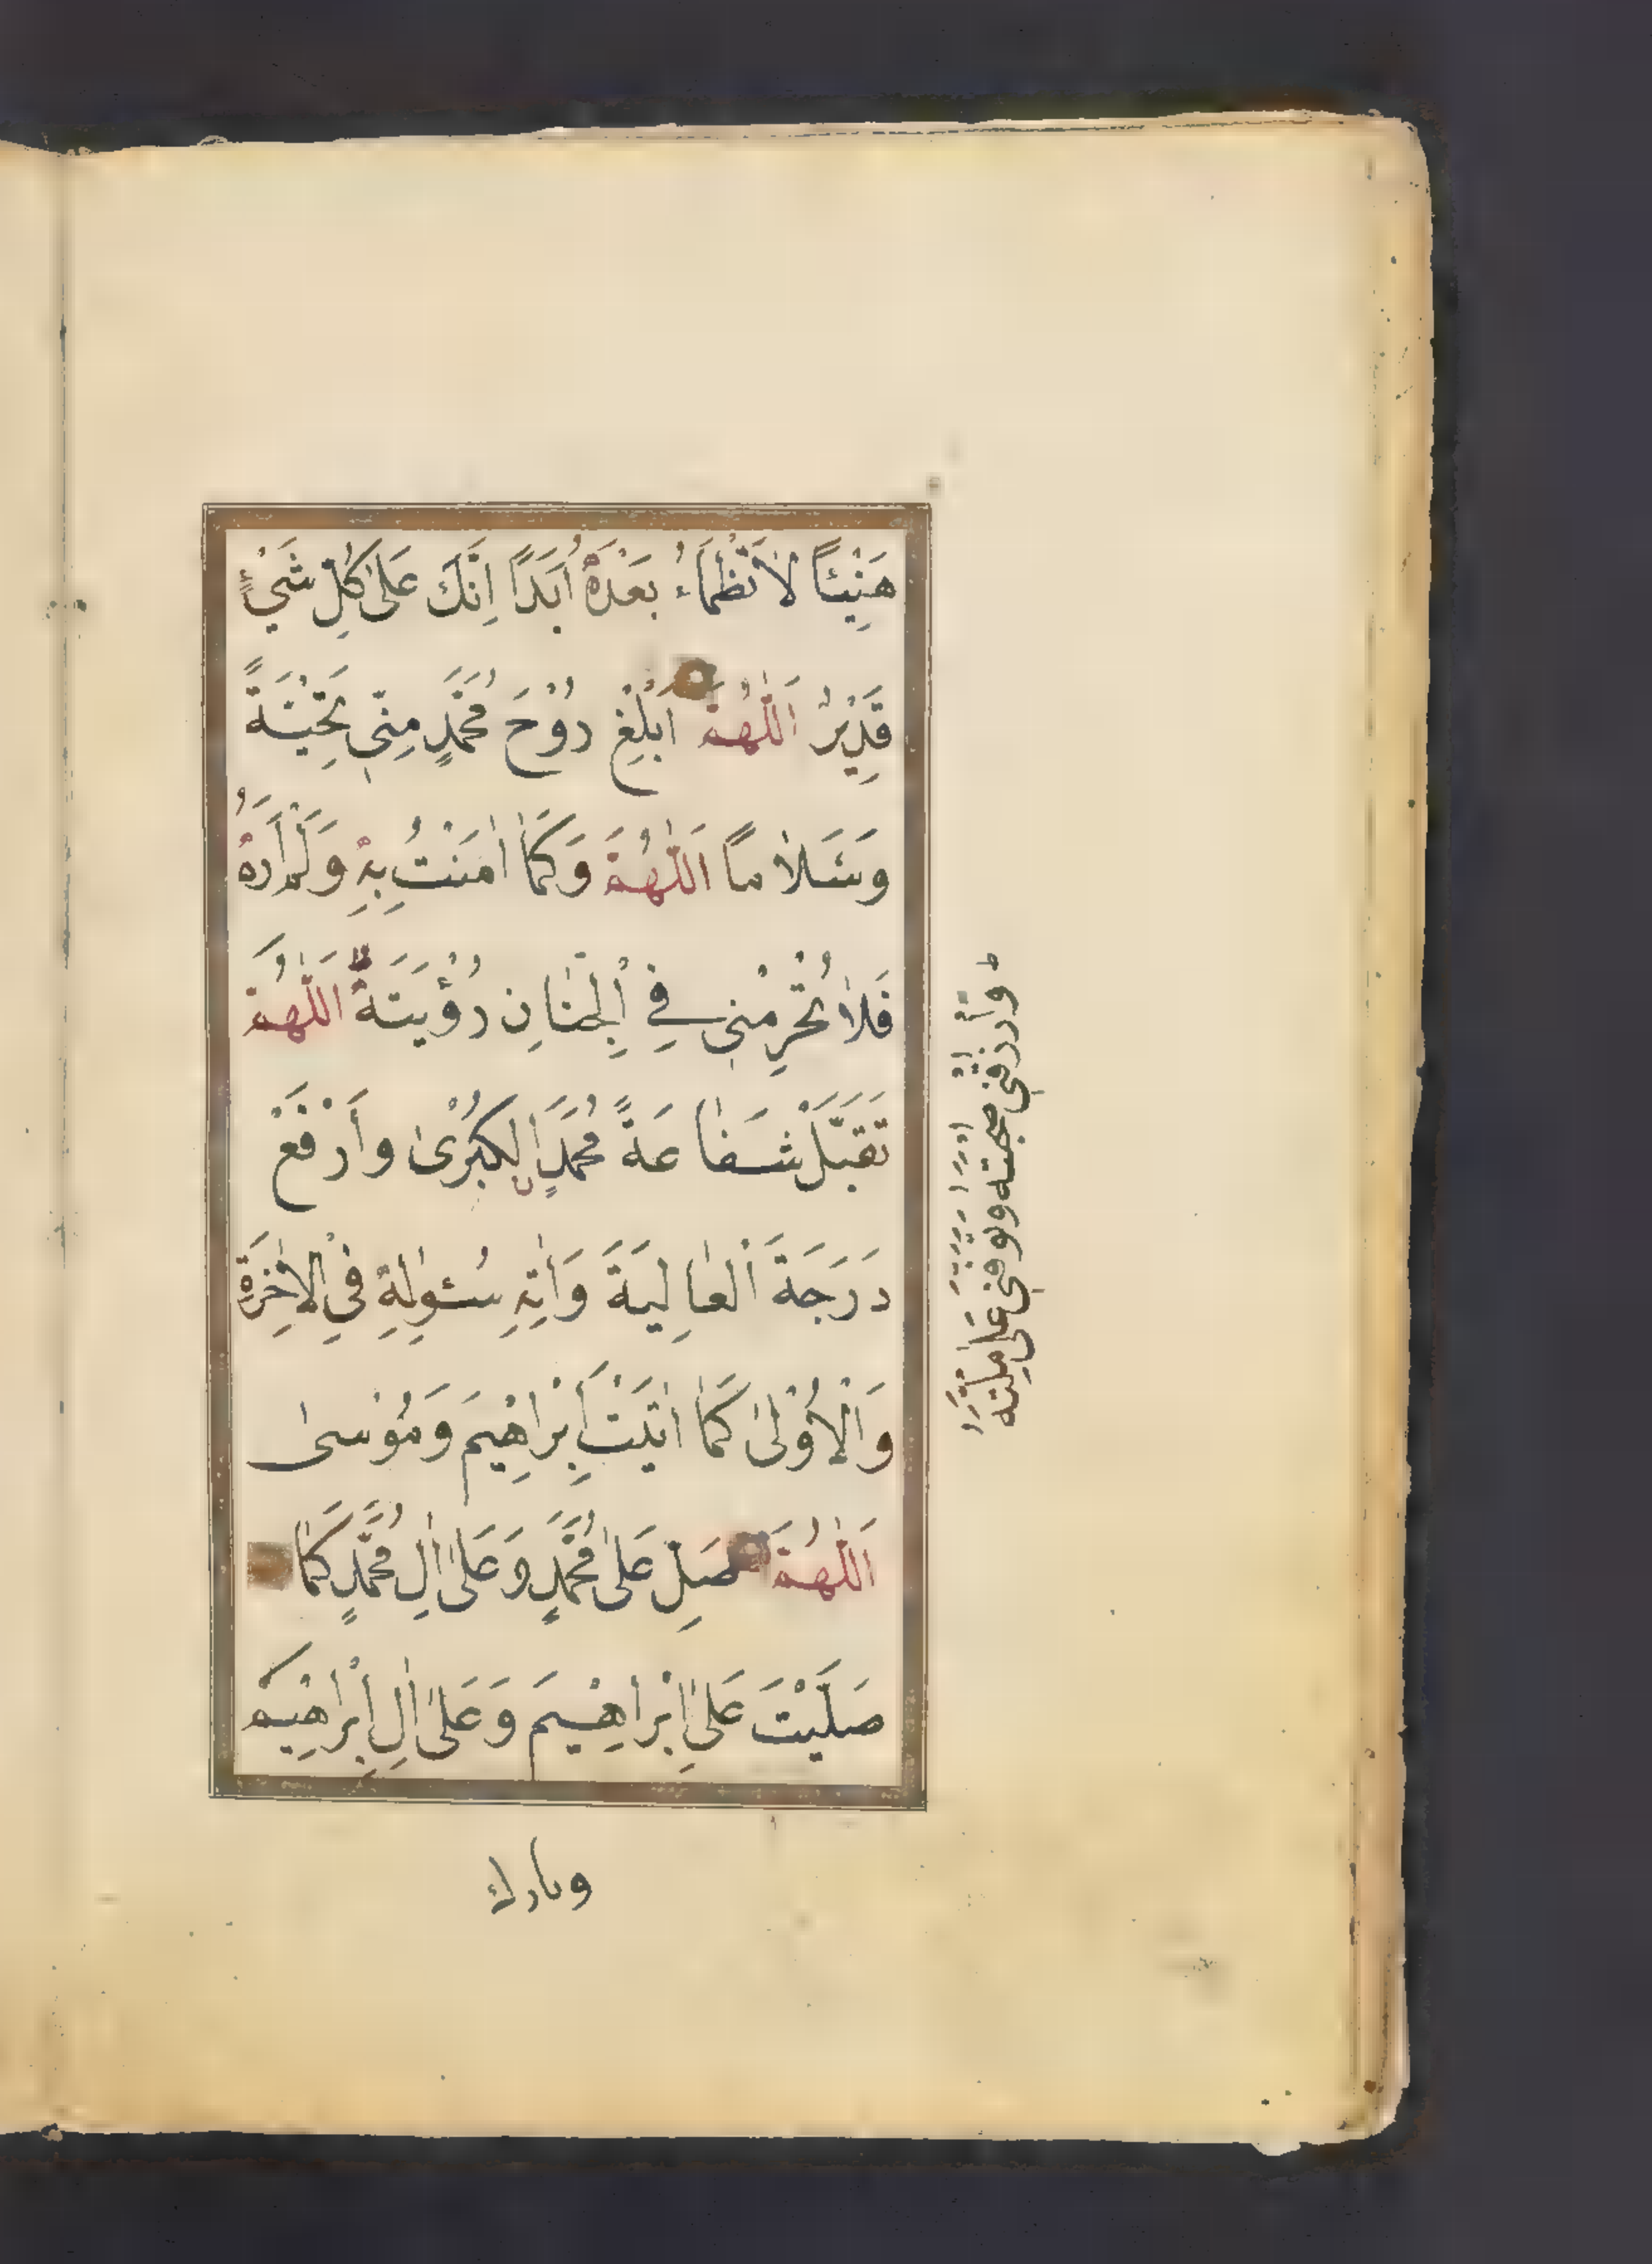 هَنِيْئًا لَانَظْمَاءُ بَعْدَهُ اَبَدًا اِنَّكَ عَلٰى كُلِّ شَيْءٍ
قَدِيْرٌ اَللّٰهُمَّ اَبْلِغْ رُوْحَ مُحَمَّدٍ مِنِّيْ تَحِيَّةً
وَسَلَامًا اَللّٰهُمَّ وَكَمَا اٰمَنْتُ بِهٖ وَلَمْ اَرَهُ
فَلَا تُحْرِمْنِيْ فِي الْجِنَانِ رُؤْيَتَهُ اَللّٰهُمَّ
تَقَبَّلْ شَفَاعَةَ مُحَمَّدٍ الْكُبْرٰى وَارْفَعْ
دَرَجَةَ الْعَالِيَةَ وَاٰتِهٖ سُئُولِهٖ فِي الْاٰخِرَةِ
وَالْاُوْلٰى كَمَا اٰتَيْتَ اِبْرَاهِيْمَ وَمُوْسٰى
اَللّٰهُمَّ صَلِّ عَلٰى مُحَمَّدٍ وَعَلٰى اٰلِ مُحَمَّدٍ كَمَا
صَلَّيْتَ عَلٰى اِبْرَاهِيْمَ وَعَلٰى اٰلِ اِبْرَاهِيْمَ
وبارك
وارزقني صحبته وتوفني على ملته